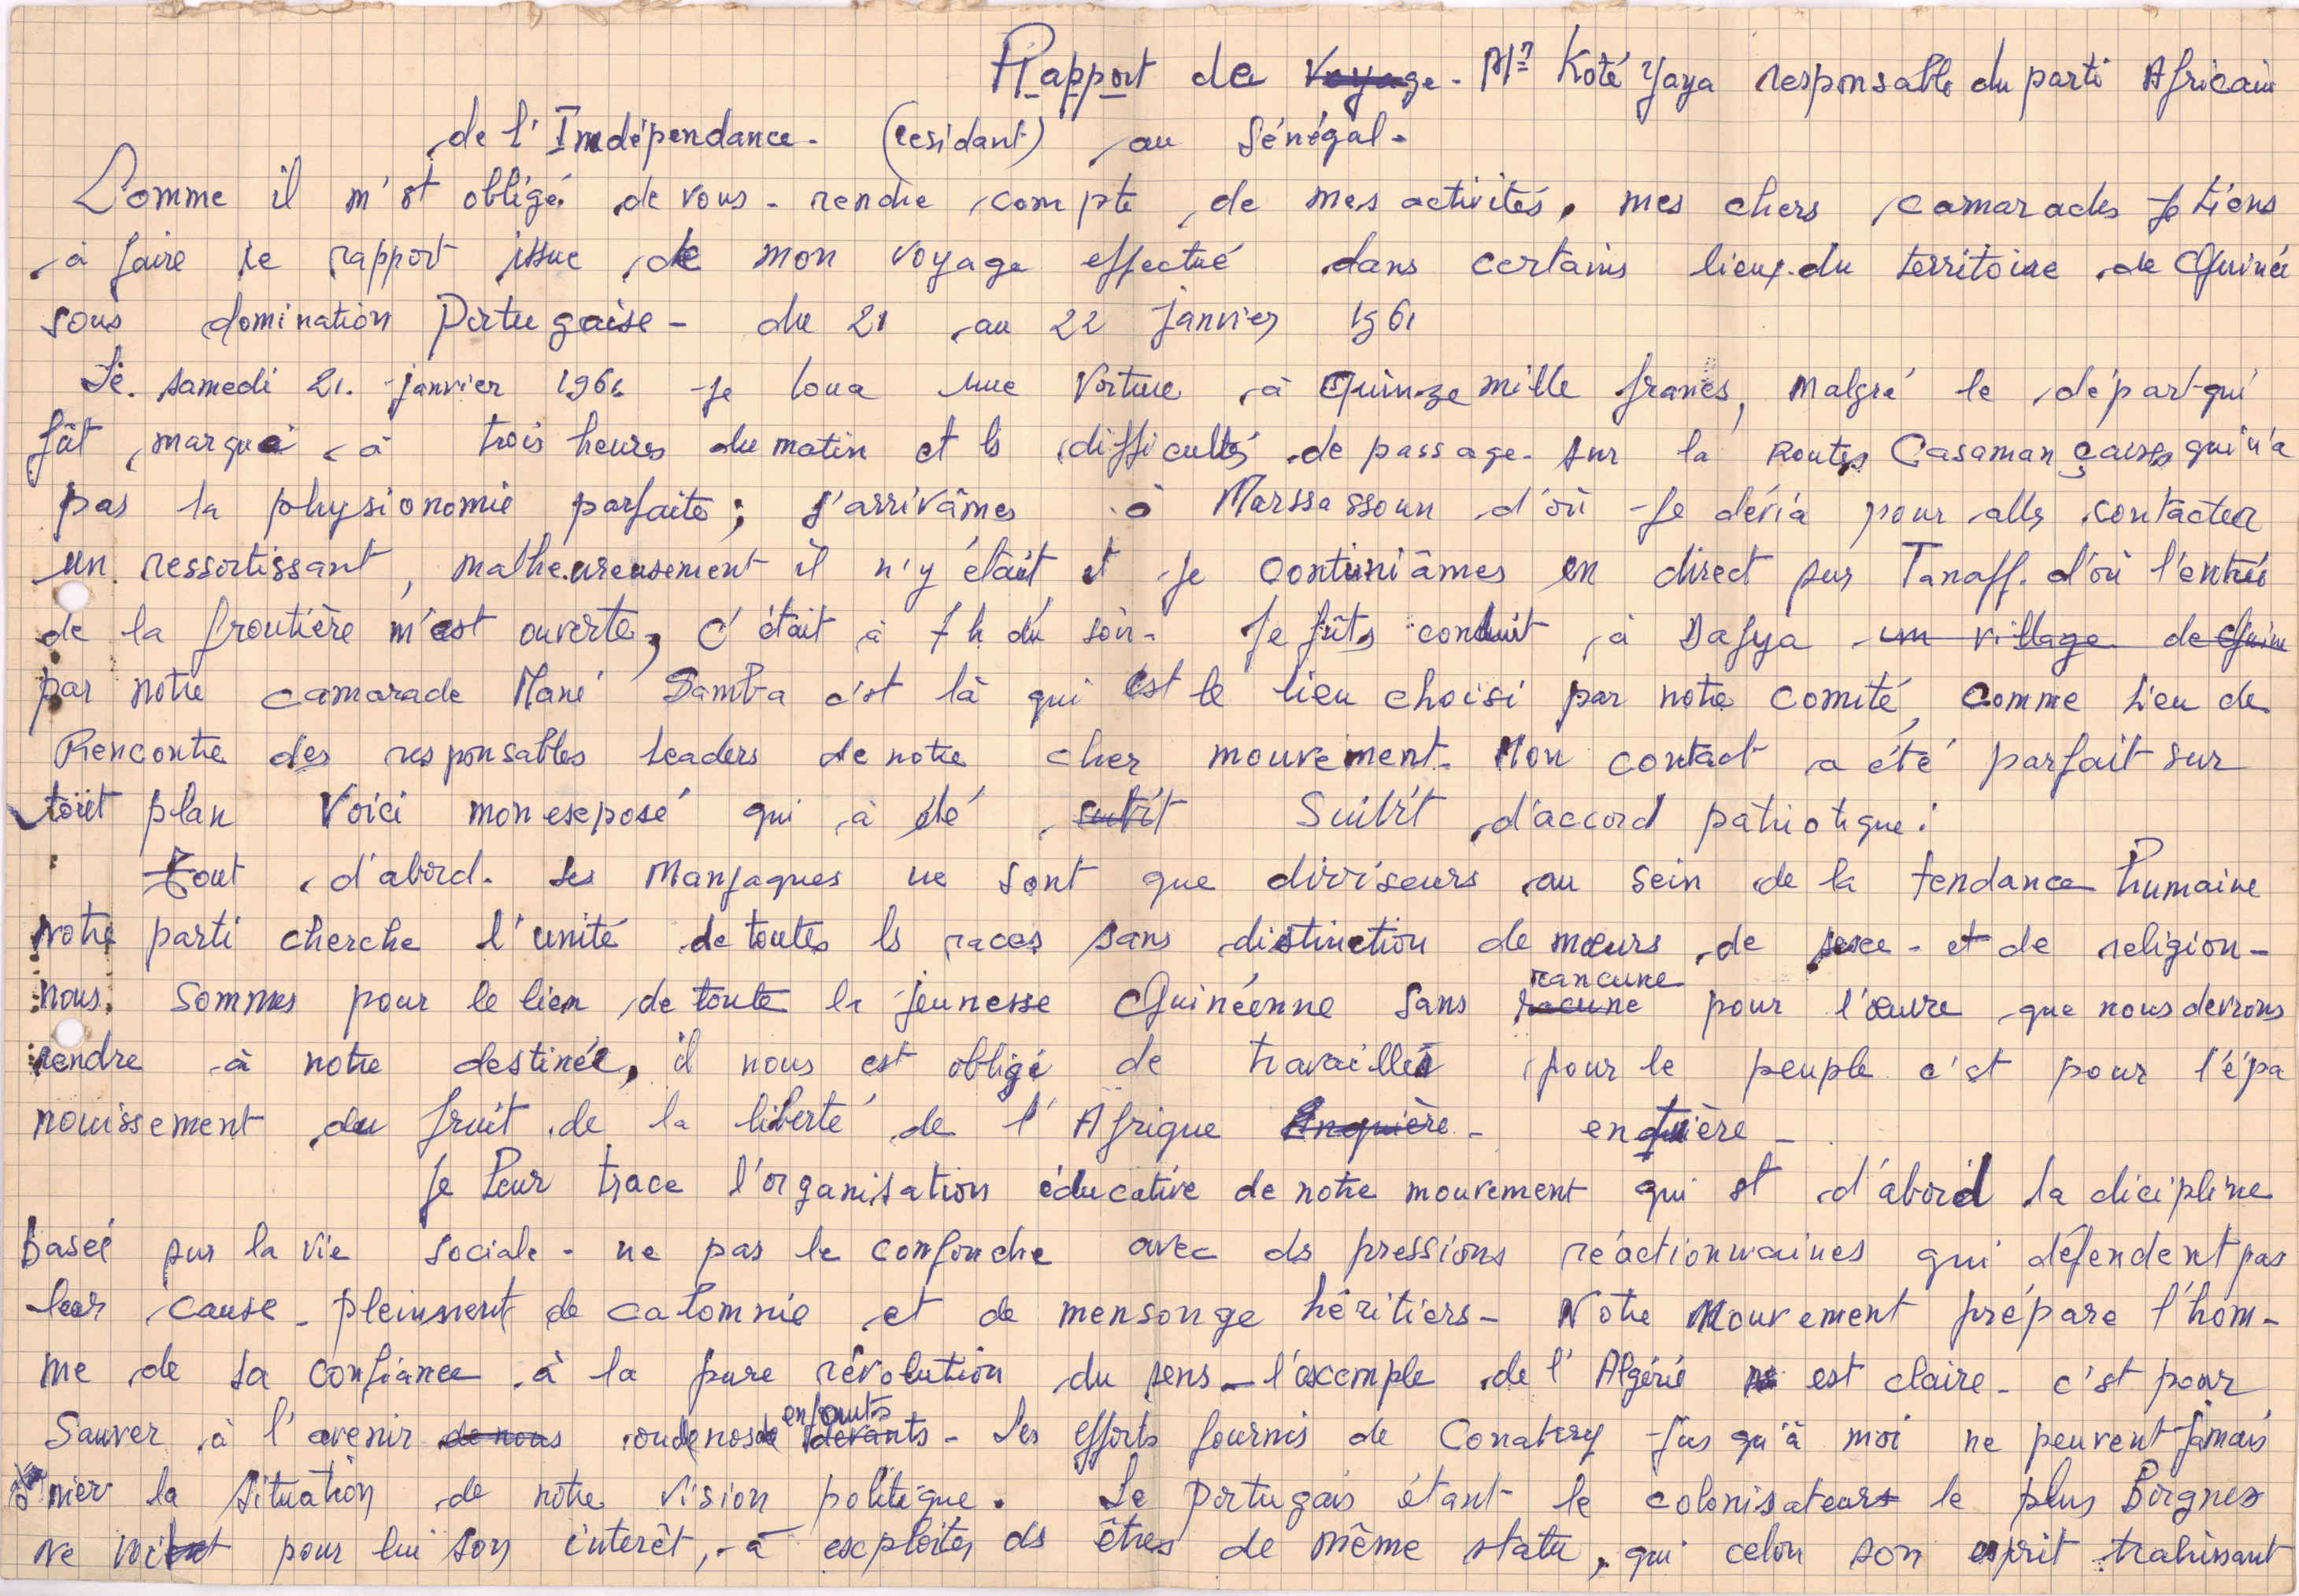 Rapport de Voyage - Mr Koté Yaya responsable du parti Africain
de l'Indépendance - (residant) au Sénégal -
Comme il m'st obligé de vous - rendre compte de mes activités, mes chers camarades je tiens
à faire ce rapport issue de mon voyage effectué dans certains lieux du territoire de Guinée
sous domination Portugaise - du 21 au 22 janvier 1961
Le samedi 21. janvier 1961 je loua une voiture à Quinze mille francs, malgré le départ qui
fût marqué à trois heures du matin et ls difficultés de passage sur la Routes Casamançaises qui n'a
pas la physionomie parfaite; j'arrivâmes à Marssassoun d'où je dévia pour aller contacter
un ressortissant, malheureusement il n'y était et je continiâmes en direct sur Tanaff. d'où l'entrée
de la frontière m'est ouverte, C'était à 7 h du soir - Je fûts conduit à Dafya un village de Guine
par notre camarade Mané Samba c'st là qui est le lieu choisi par notre comité, comme lieu de
Rencontre des responsables leaders de notre cher mouvement. Mon contact a été parfait sur
toút plan Voici mon exposé qui à été suivit Suivit d'accord patriotique:
Tout d'abord. Les Manjaques ne sont que diviseurs au sein de la tendance humaine
notre parti cherche l'unité de toutes ls races sans distinction de mœurs de sexe - et de religion -
nous. sommes pour le lien de toute la jeunesse Guinéenne sans racune rancune pour l'œuvre que nous devrons
rendre à notre destinée, il nous est obligé de travailler pour le peuple c'st pour l'épa
nouissement du fruit de la liberté de l'Afrique Enquière - enquière -
Je leur trace l'organisation éducative de notre mouvement qui st d'abord la dicipline
baseé sur la vie sociale - ne pas le confondre avec ds pressions réactionnaires qui défendent pas
leur cause - pleinnent de calomnie et de mensonge héritiers - Notre Mouvement prépare l'hom-
me de sa confiance à la pure révolution du sens - l'exemple de l'Algérie est claire - c'st pour
Sauver à l'avenir de nous ou de nos devants enfants - Les efforts fournis de Conakry jus qu'à moi ne peuvent jamais
nier la situation de notre vision politique. Le Portugais étant le colonisateurs le plus Borgnes
ne voient pour lui son interêt, à exploiter ds êtres de même statu, qui celon son esprit trahissant